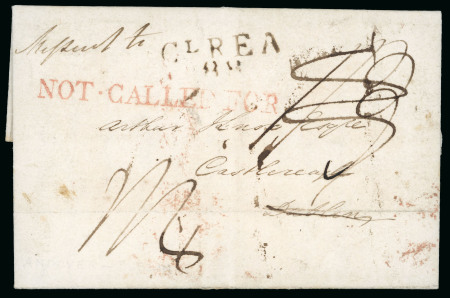 Missent to
CLREA
88
NOT·CALLED FOR
Arthur Knox Esqr
Castlerea
Dublin